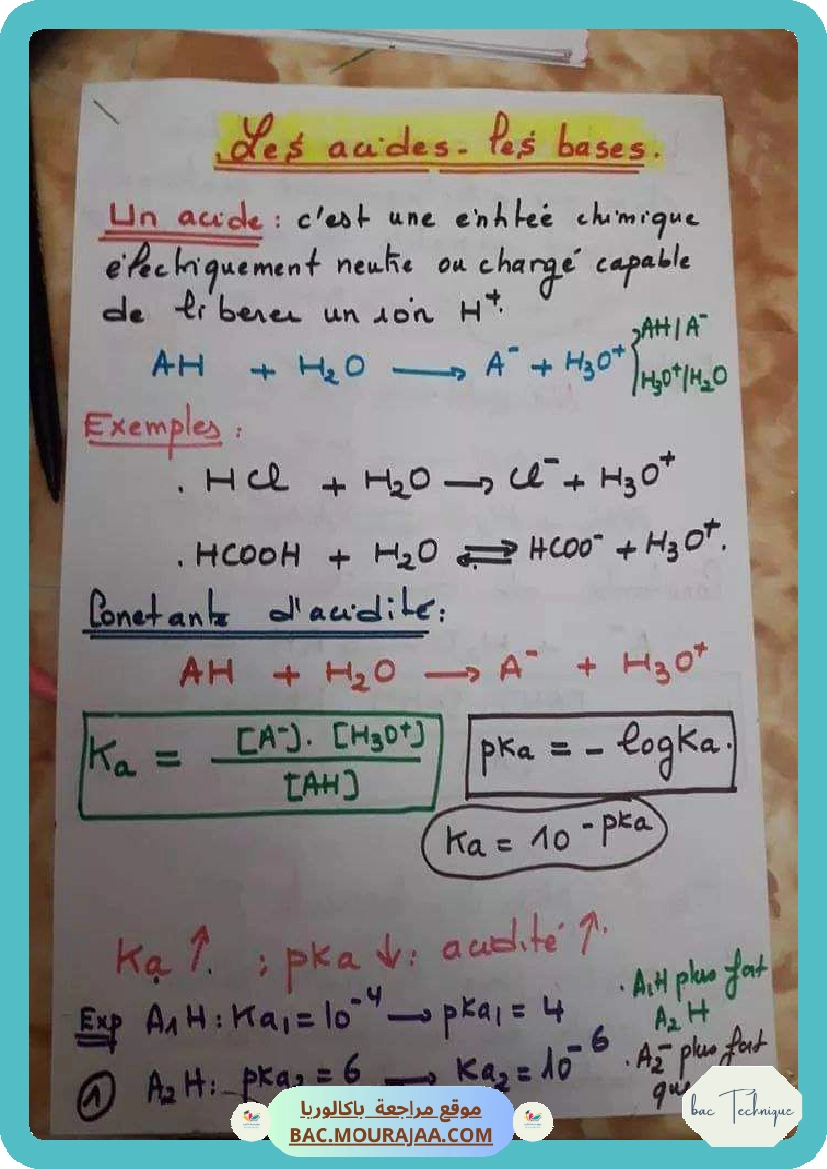 Les acides - les bases.
Un acide : c'est une entiteé chimique
électriquement neutre ou chargé capable
de liberer un ion H⁺.
AH + H₂O ⟶ A⁻ + H₃O⁺
AH / A⁻
H₃O⁺/H₂O
Exemples :
. HCl + H₂O ⟶ Cl⁻ + H₃O⁺
. HCOOH + H₂O ⇌ HCOO⁻ + H₃O⁺.
Constante d'acidité :
AH + H₂O ⟶ A⁻ + H₃O⁺
Ka = [A⁻]. [H₃O⁺] / [AH]
pKa = - logKa.
Ka = 10⁻ᵖᴷᵃ
Ka ↑. : pKa ↓ : acidité ↑.
Exp A₁H : Ka₁ = 10⁻⁴ ⟶ pKa₁ = 4
. A₁H plus fort
A₂H
① A₂H : pKa₂ = 6 ⟶ Ka₂ = 10⁻⁶
. A₂⁻ plus fort
que
موقع مراجعة باكالوريا
BAC.MOURAJAA.COM
bac Technique